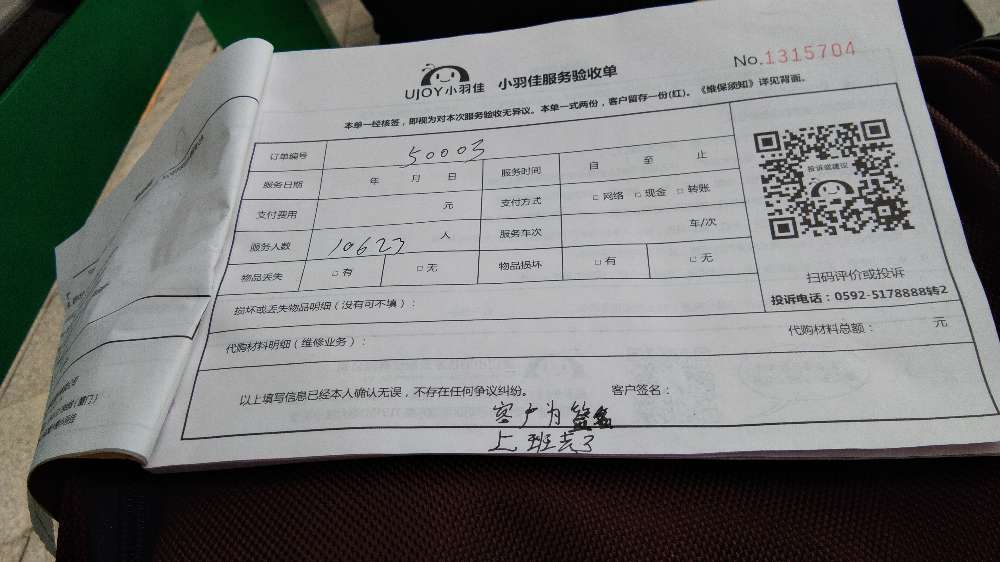 UJOY小羽佳 小羽佳服务验收单 No.1315704
本单一经核签，即视为对本次服务验收无异议。本单一式两份，客户留存一份(红)。《维保须知》详见背面。
订单编号 50003
服务日期 年 月 日 服务时间 自 至 止
支付费用 元 支付方式 □ 网络 □ 现金 □ 转账
服务人数 10623 人 服务车次 车/次
物品丢失 □ 有 □ 无 物品损坏 □ 有 □ 无
投诉或建议
扫码评价或投诉
投诉电话：0592-5178888转2
损坏或丢失物品明细（没有可不填）：
代购材料明细（维修业务）： 代购材料总额： 元
以上填写信息已经本人确认无误，不存在任何争议纠纷。 客户签名：
客户为签名
上班去了